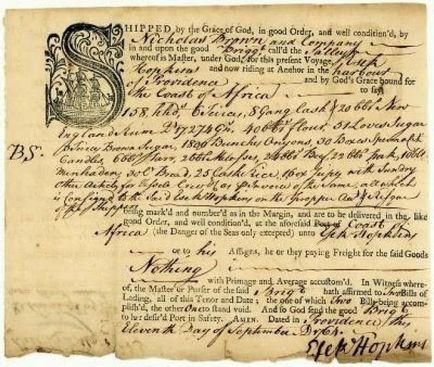 SHIPPED, by the Grace of God, in good Order, and well condition'd, by
Nicholas Brown and Company
in and upon the good Brigt call'd the Sally
whereof is Master, under God, for this present Voyage, Esek
Hopkins and now riding at Anchor in the harbour
of Providence and by God's Grace bound for
the Coast of Africa to say
158 hhds 6 Teirces, 8 Gang Cask & 20 bbs New
England Rum 40 bbs flour, 51 Loves Sugar
Brown Sugar, 1800 Bunches Onyons, 30 Boxes Spermaceti
BS
Candles, 6 bbs Tarr, Beef Pork,
Menhaden, 30 C Bread, 25 Casks Rice, with Sundry
Other
is Consign'd to the Said Esek Hopkins on the Propper
of the Shippers
being mark'd and number'd as in the Margin, and are to be delivered in the like
good Order, and well condition'd, at the aforesaid Coast of
Africa (the Danger of the Seas only excepted) unto Esek Hopkins
or to his Assigns, he or they paying Freight for the said Goods
Nothing
with Primage and Average accustom'd. In Witness whereof,
the Master or Purser of the said Brigt hath affirmed to Two Bills of
Lading, all of this Tenor and Date; the one of which Two Bills being accomplish'd,
the other One to stand void. And so God send the good Brigt
to her desir'd Port in Safety. AMEN. Dated in Providence this
Eleventh Day of September 1764
Esek Hopkins